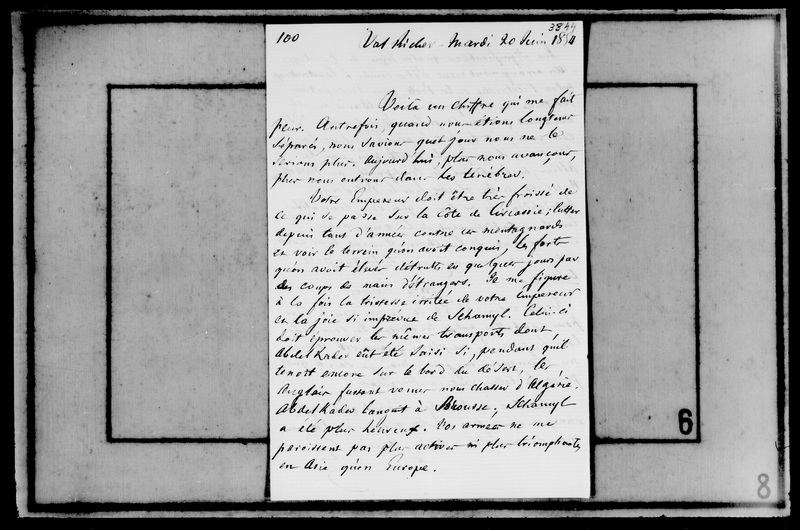 3854
100 Val Richer - Mardi 20 Juin 1854
Voilà un chiffre qui me fait
peur. Autrefois, quand nous étions longtems
séparés, nous savions quel jour nous ne le
serions plus. Aujourd'hui, plus nous avançons,
plus nous entrons dans les ténèbres.
Votre Empereur doit être très froissé de
ce qui se passe sur la côte de Circassie; lutter
depuis tant d'années contre ces montagnards
et voir le terrain qu'on avoit conquis, les forts
qu'on avoit élevés détruits en quelques jours par
des coups de main d'étrangers. Je me figure
à la fois la tristesse irritée de votre Empereur
et la joie si imprévue de Schamyl. Celui-ci
doit éprouver les mêmes transports dont
Abdel Kader eût été saisi si, pendant qu'il
tenoit encore sur le bord du désert, les
Anglais fussent venus nous chasser d'Algérie.
Abdel Kader languit à Brousse; Schamyl
a été plus heureux. Vos armées ne me
paroissent pas plus actives ni plus triomphantes
en Asie qu'en Europe.
6
8